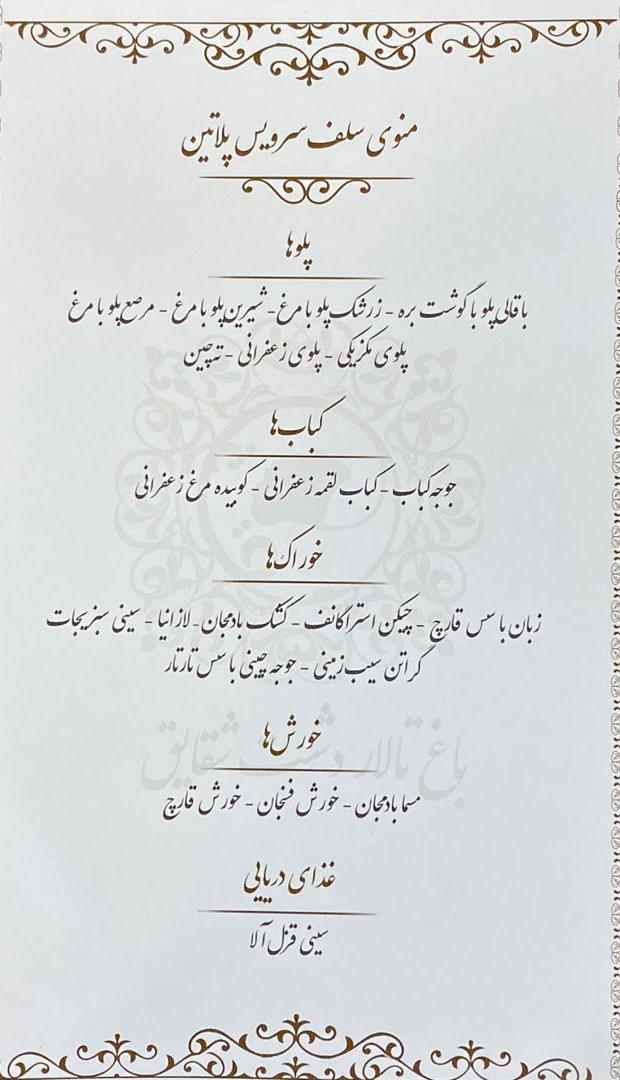 منوی سلف سرویس پلاتین
پلوها
باقالی پلو با گوشت بره - زرشک پلو با مرغ - شیرین پلو با مرغ - مرصع پلو با مرغ
پلوی مکزیکی - پلوی زعفرانی - ته چین
کباب‌ها
جوجه کباب - کباب لقمه زعفرانی - کوبیده مرغ زعفرانی
خوراک‌ها
زبان با سس قارچ - چیکن استراگانف - کشک بادمجان - لازانیا - سینی سبزیجات
گراتن سیب زمینی - جوجه چینی با سس تارتار
خورش‌ها
باغ تالار دشت شقایق
مسما بادمجان - خورش فنجان - خورش قارچ
غذای دریایی
سینی قزل آلا